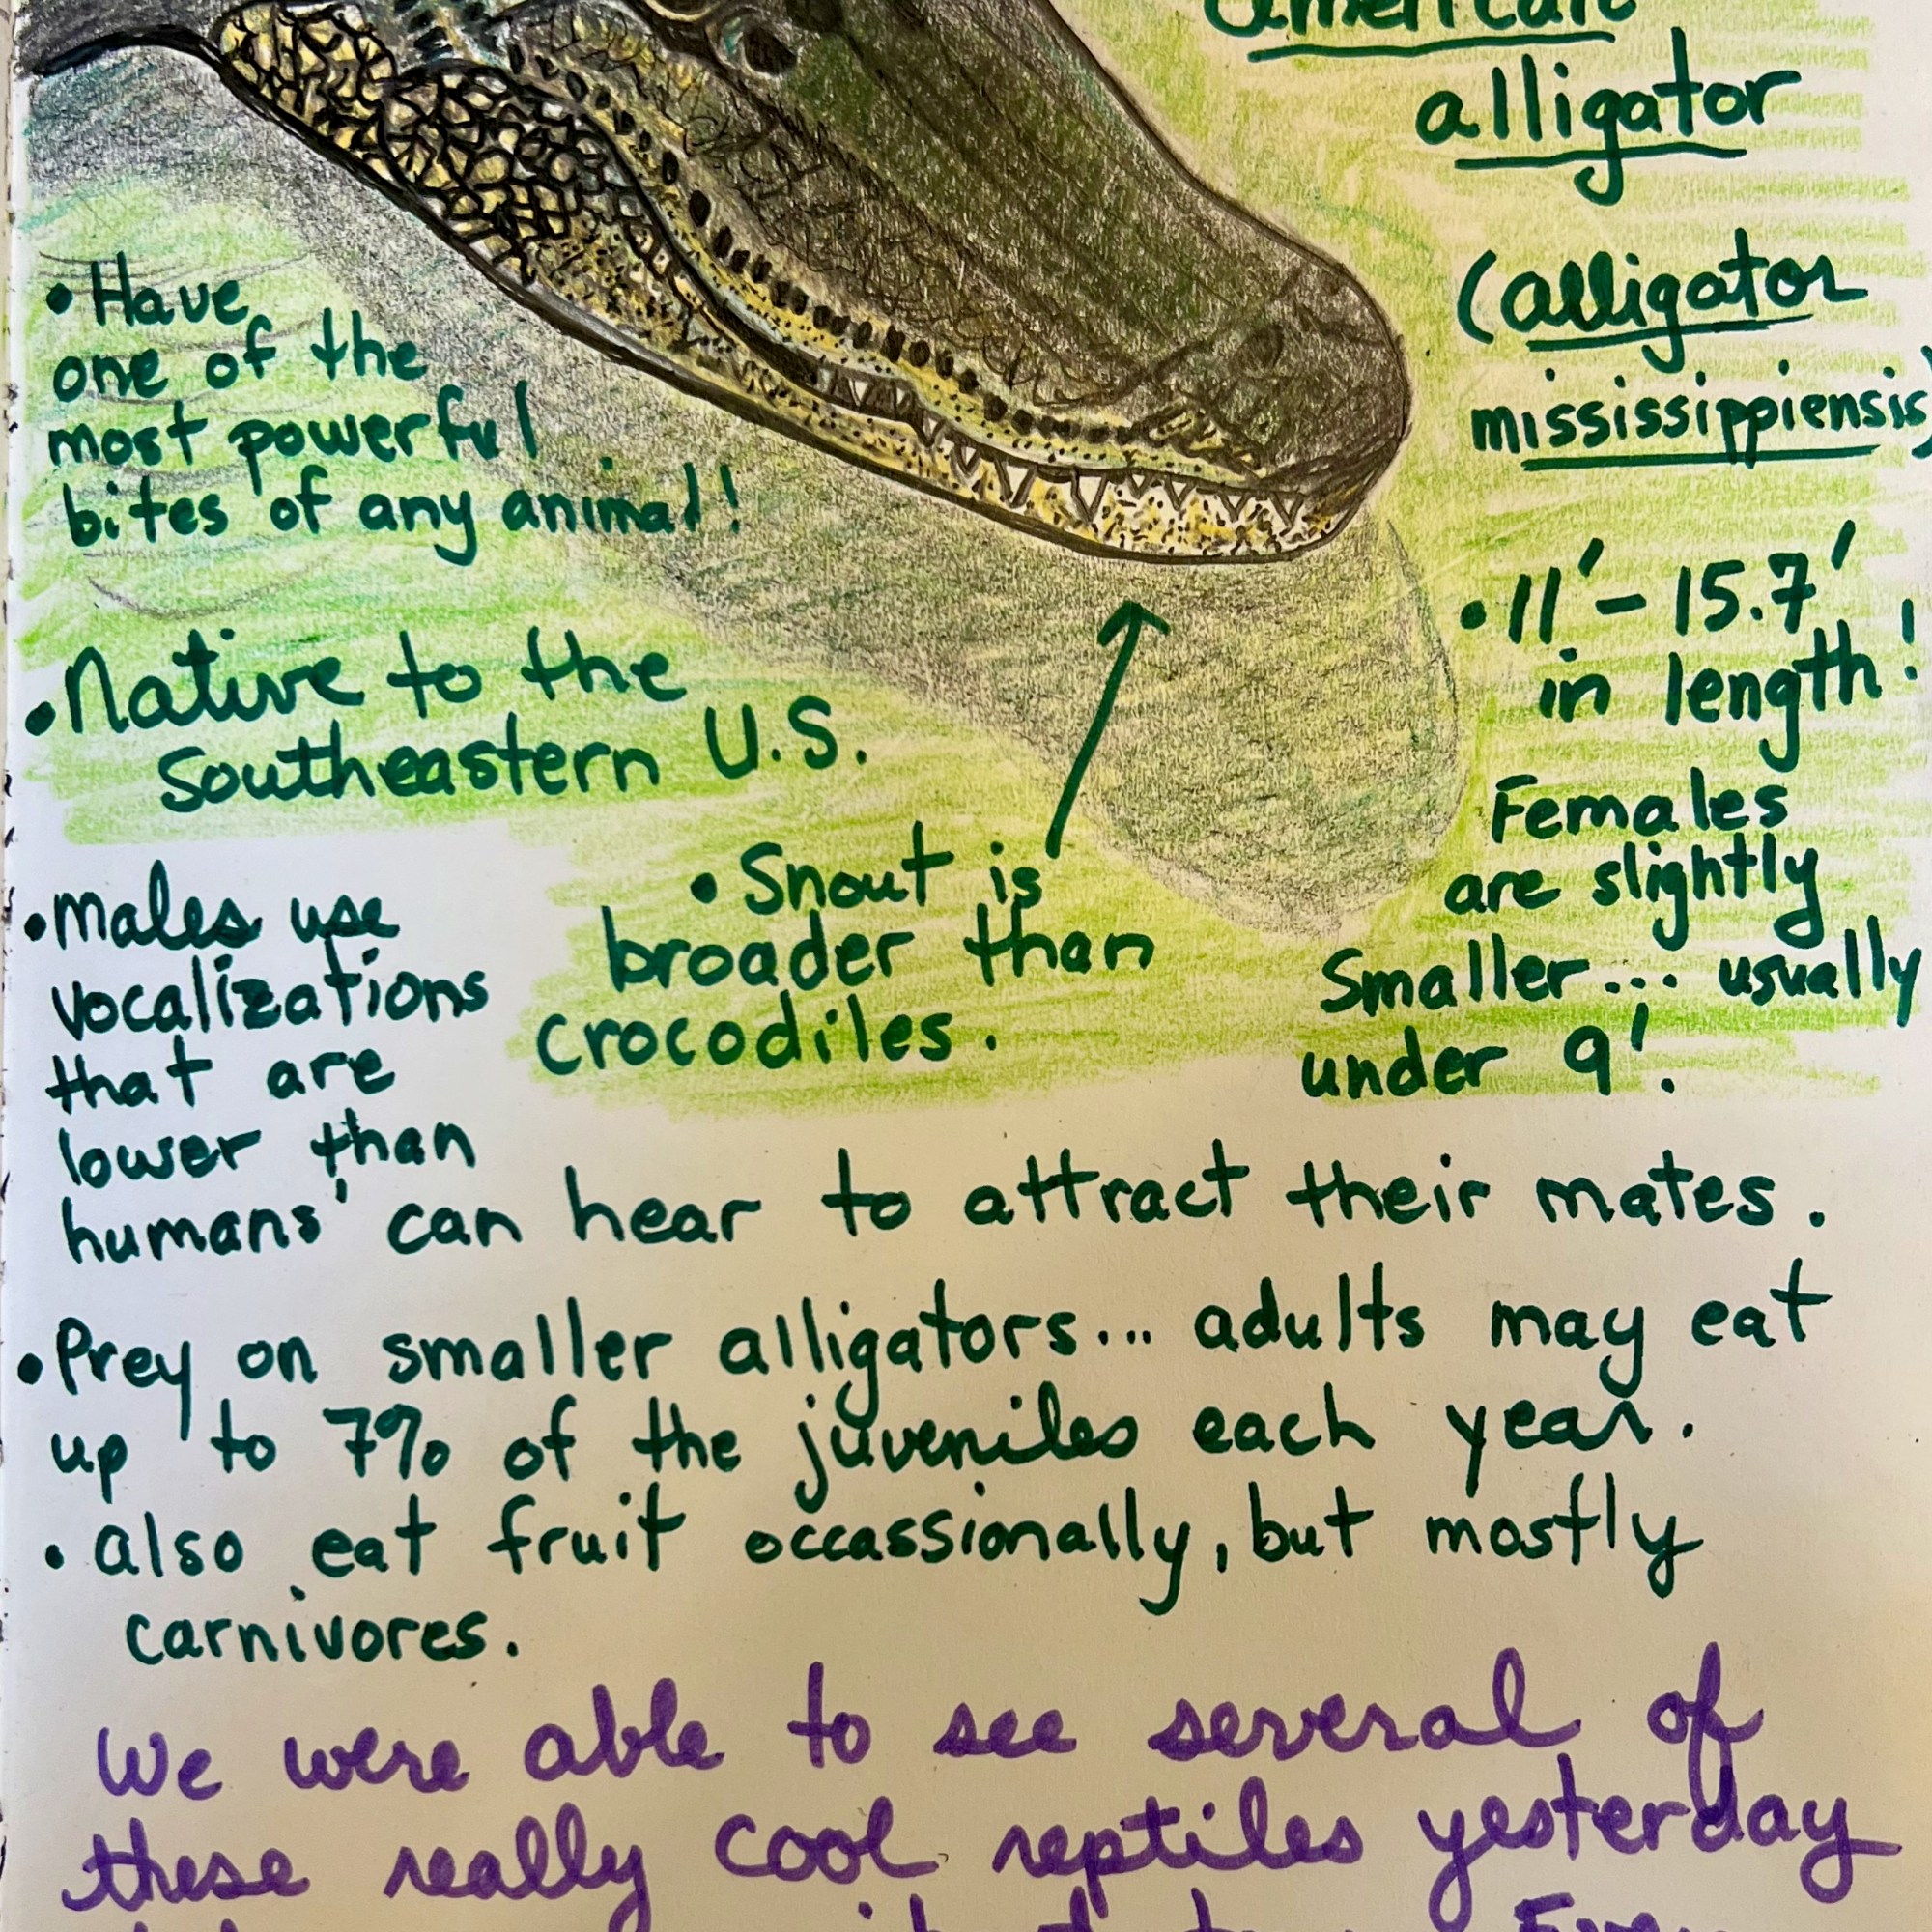 american
alligator
(alligator
mississippiensis)
• Have
one of the
most powerful
bites of any animal!
• 11' - 15.7'
in length!
Females
are slightly
smaller... usually
under 9'.
• Native to the
Southeastern U.S.
• Snout is
broader than
crocodiles.
• males use
vocalizations
that are
lower than
humans' can hear to attract their mates.
• Prey on smaller alligators... adults may eat
up to 7% of the juveniles each year.
• also eat fruit occassionally, but mostly
carnivores.
We were able to see several of
these really cool reptiles yesterday